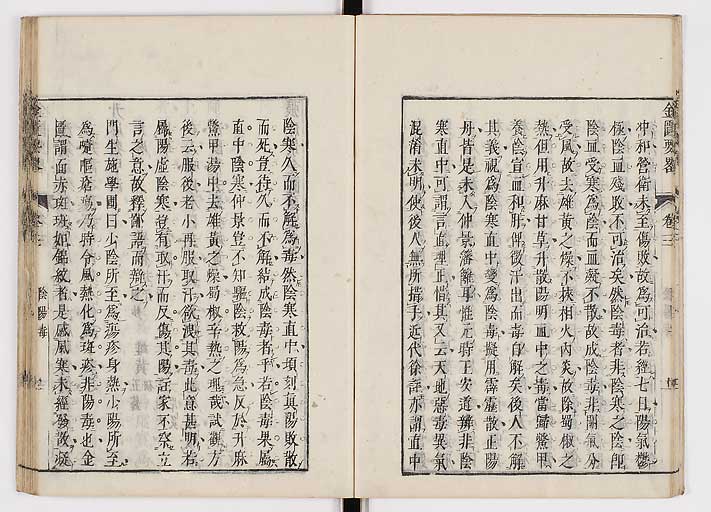 冲和營衛未至傷敗故爲可治若經七日陽氣鬱
極陰血殘敗不可治矣然陰毒者非陰寒之陰卽
陰血受寒爲陰而血凝不散故成陰毒非關氣分
受風故去雄黃之燥不挾相火內炎故除蜀椒之
熱但用升麻甘草升散陽明血中之毒當歸鱉甲
養陰宣血和肝俾微汗出而毒自解矣後人不解
其義視爲陰寒直中變爲陰毒擬用霹靂散正陽
丹皆是未入仲景藩籬耳惟元時王安道辨非陰
寒直中可謂言直理正惜其又云天地惡毒異氣
混淆未明使後人無所措手近代徐註亦謂直中
陰寒久而不解爲毒然陰寒直中頃刻眞陽敗散
而死豈待久而不解結成陰毒者乎若陰毒果屬
直中陰寒仲景豈不知驅陰救陽爲急反於升麻
鱉甲湯中去雄黃之燥蜀椒辛熱之理哉試觀方
後云服後老小再服取汗欲洩其毒此意甚明若
屬陽虛陰寒豈有取汗而反傷其陽註家不察立
言之意故釋鄙語而辯之
門生施學圃曰少陰所至爲瘍疹身熱少陽所至
爲嚏嘔瘡瘍乃時令風熱化爲斑疹非陽毒也金
匱謂面赤斑斑如錦紋者是感風寒未經發散凝
金匱要畧
卷三
陰陽毒